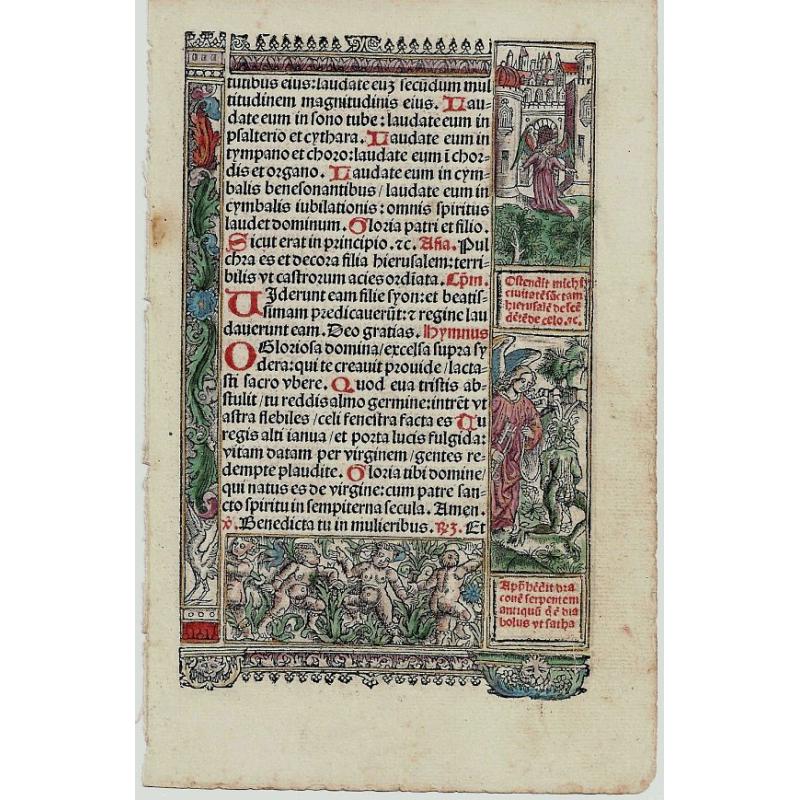 tutibus eius: laudate euʒ secundum mul
titudinem magnitudinis eius. Lau-
date eum in sono tube: laudate eum in
psalterio et cythara. Laudate eum in
tympano et choro: laudate eum ī chor-
dis et organo. Laudate eum in cym-
balis benesonantibus / laudate eum in
cymbalis iubilationis: omnis spiritus
laudet dominum. Gloria patri et filio.
Sicut erat in principio. ⁊c. Aña. Pul
chra es et decora filia hierusalem: terri-
bilis vt castrorum acies ordīata. Cpm̄.
UIderunt eam filie syon: et beatis-
simam predicauerūt: ⁊ regine lau
dauerunt eam. Deo gratias. Hymnus
O Gloriosa domina / excelsa supra sy
dera: qui te creauit prouide / lacta-
sti sacro vbere. Quod eua tristis ab-
stulit / tu reddis almo germine: intrēt vt
astra flebiles / celi fenestra facta es Tu
regis alti ianua / et porta lucis fulgida:
vitam datam per virginem / gentes re-
dempte plaudite. Gloria tibi domine /
qui natus es de virgine: cum patre san-
cto spiritu in sempiterna secula. Amen.
℣. Benedicta tu in mulieribus. ℟. Et
Ostendit michi
ciuitatē sāctam
hierusalē descē
dētē de celo. ⁊c.
Apphēdit dra
conē serpentem
antiquū q̄ ē dia
bolus vt satha